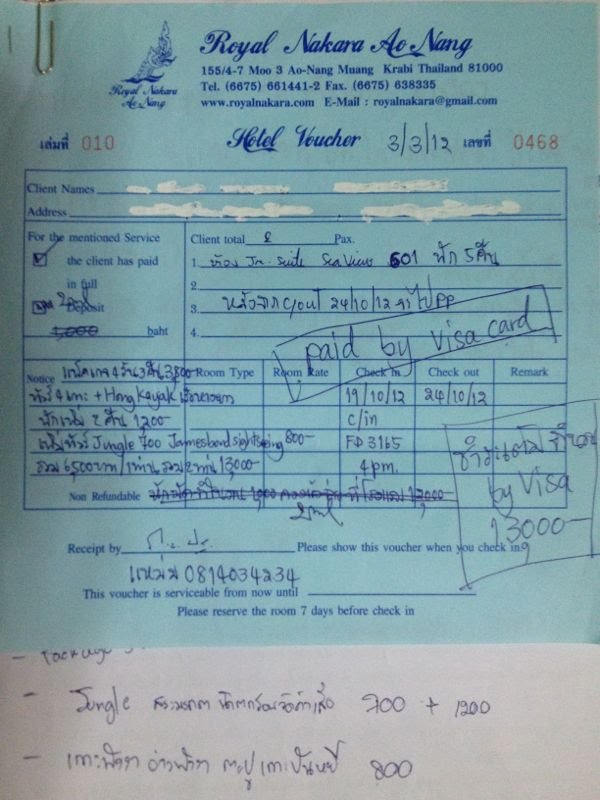 Royal Nakara Ao Nang
155/4-7 Moo 3 Ao-Nang Muang Krabi Thailand 81000
Tel. (6675) 661441-2 Fax. (6675) 638335
www.royalnakara.com E-Mail : royalnakara@gmail.com
Royal Nakara
Ao Nang
เล่มที่ 010 Hotel Voucher 3/3/12 เลขที่ 0468
Client Names
Address
For the mentioned Service
the client has paid
in full
Deposit
1,000 baht
Client total 2 Pax.
1. ห้อง Jr. Suite Sea View 601 พัก 5 คืน
2.
3. หลังจาก c/out 24/10/12 จะไป PP
4.
paid by visa card
Notice แพ็คเกจ 4 วัน 3 คืน 3,800 Room Type Room Rate Check in Check out Remark
ทัวร์ 4 เกาะ + Hong Kayak 19/10/12 24/10/12
พักเพิ่ม 2 คืน 1,200- c/in
เพิ่มทัวร์ Jungle 700 Jamesbond sightseeing 800- FD 3165
รวม 6,500 บาท/ท่าน รวม 2 ท่าน 13,000- 4 pm.
by Visa
13000-
Non Refundable
Receipt by Please show this voucher when you check in
แหม่ม 0814034234
This voucher is serviceable from now until
Please reserve the room 7 days before check in
- Package
- Jungle สระมรกต น้ำตกร้อน วัดถ้ำเสือ 700 + 1200
- เกาะพังงา อ่าวพังงา ตะปู เกาะปันหยี 800